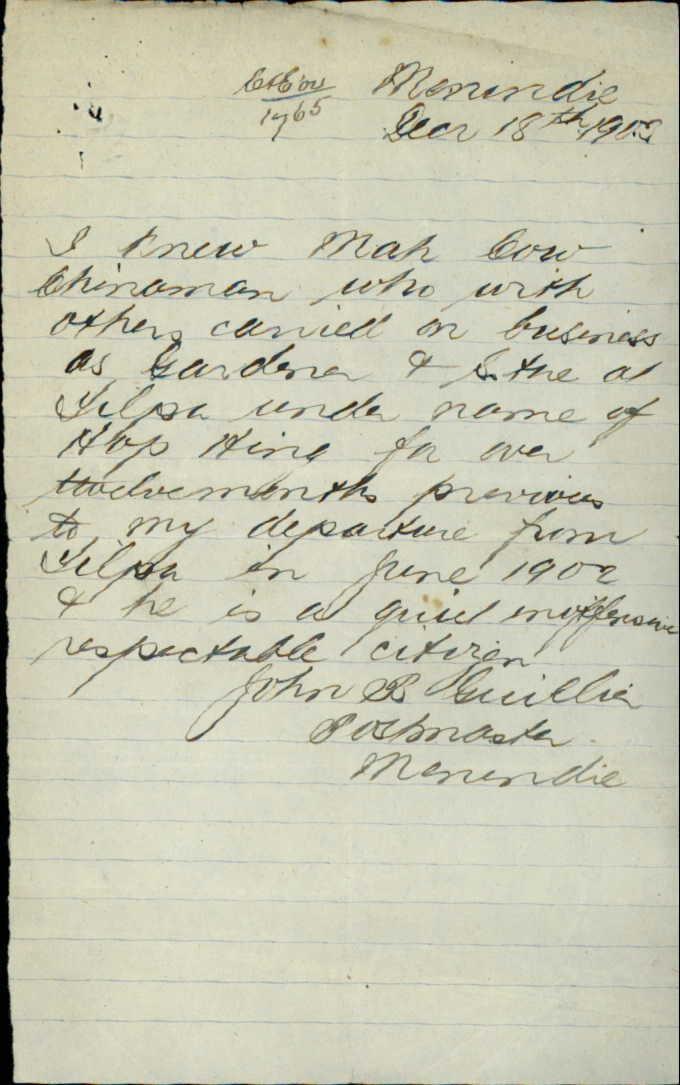 Menindie
Decr 18th 1903
1765
I knew Mah Cow
Chinaman who with
others carried on business
as Gardener & at
Tilpa under name of
Hop Hing for over
twelvemonths previous
to my departure from
Tilpa in June 1902
& he is a quiet inoffensive
respectable citizen
John B Guillier
Postmaster
Menindie